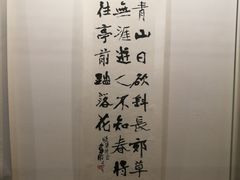 青山日欲斜長郊草
無涯遊人不知春將
往亭前踏落花